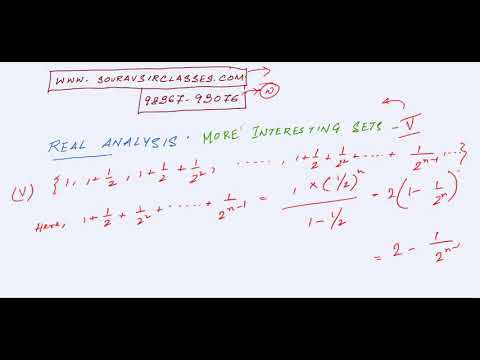 WWW. SOURAVSIRCLASSES.COM
98367-93076 W
REAL ANALYSIS. MORE INTERESTING SETS - V
(V) {1, 1+1/2, 1+1/2+1/2², ......, 1+1/2+1/2²+.....+1/2ⁿ⁻¹, ...}
Here, 1+1/2+1/2²+......+1/2ⁿ⁻¹ = 1×(1/2)ⁿ/1-1/2 = 2(1-1/2ⁿ)
= 2 - 1/2ⁿ⁻¹